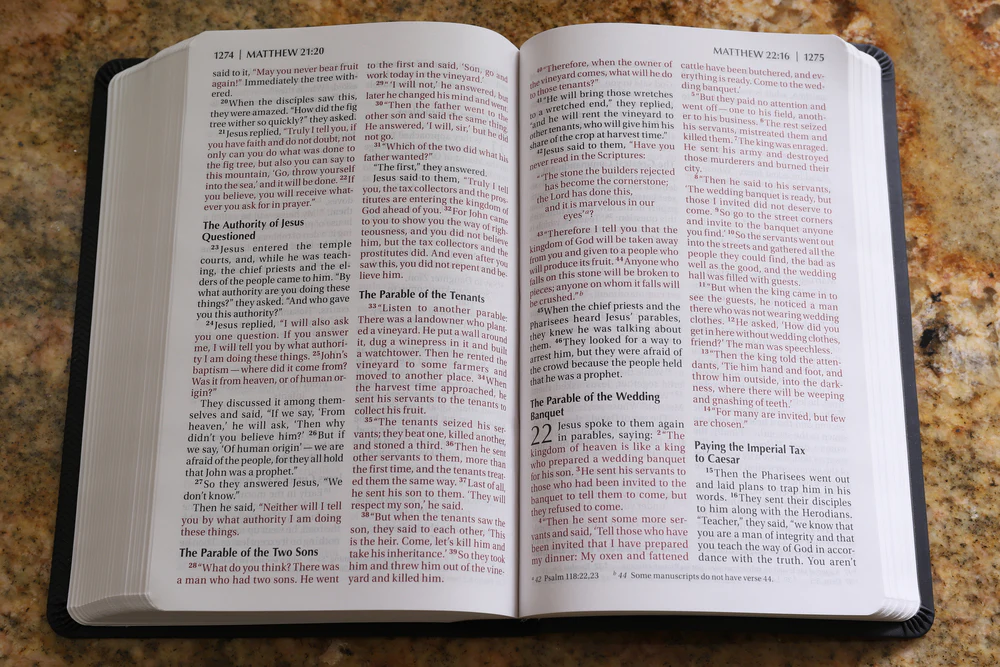 1274 | MATTHEW 21:20
said to it, “May you never bear fruit
again!” Immediately the tree with-
ered.
20When the disciples saw this,
they were amazed. “How did the fig
tree wither so quickly?” they asked.
21Jesus replied, “Truly I tell you, if
you have faith and do not doubt, not
only can you do what was done to
the fig tree, but also you can say to
this mountain, ‘Go, throw yourself
into the sea,’ and it will be done. 22If
you believe, you will receive what-
ever you ask for in prayer.”
The Authority of Jesus
Questioned
23Jesus entered the temple
courts, and, while he was teach-
ing, the chief priests and the el-
ders of the people came to him. “By
what authority are you doing these
things?” they asked. “And who gave
you this authority?”
24Jesus replied, “I will also ask
you one question. If you answer
me, I will tell you by what authori-
ty I am doing these things. 25John’s
baptism — where did it come from?
Was it from heaven, or of human or-
igin?”
They discussed it among them-
selves and said, “If we say, ‘From
heaven,’ he will ask, ‘Then why
didn’t you believe him?’ 26But if
we say, ‘Of human origin’ — we are
afraid of the people, for they all hold
that John was a prophet.”
27So they answered Jesus, “We
don’t know.”
Then he said, “Neither will I tell
you by what authority I am doing
these things.
The Parable of the Two Sons
28“What do you think? There was
a man who had two sons. He went
to the first and said, ‘Son, go and
work today in the vineyard.’
29“ ‘I will not,’ he answered, but
later he changed his mind and went.
30“Then the father went to the
other son and said the same thing.
He answered, ‘I will, sir,’ but he did
not go.
31“Which of the two did what his
father wanted?”
“The first,” they answered.
Jesus said to them, “Truly I tell
you, the tax collectors and the pros-
titutes are entering the kingdom of
God ahead of you. 32For John came
to you to show you the way of righ-
teousness, and you did not believe
him, but the tax collectors and the
prostitutes did. And even after you
saw this, you did not repent and be-
lieve him.
The Parable of the Tenants
33“Listen to another parable:
There was a landowner who plant-
ed a vineyard. He put a wall around
it, dug a winepress in it and built
a watchtower. Then he rented the
vineyard to some farmers and
moved to another place. 34When
the harvest time approached, he
sent his servants to the tenants to
collect his fruit.
35“The tenants seized his ser-
vants; they beat one, killed another,
and stoned a third. 36Then he sent
other servants to them, more than
the first time, and the tenants treat-
ed them the same way. 37Last of all,
he sent his son to them. ‘They will
respect my son,’ he said.
38“But when the tenants saw the
son, they said to each other, ‘This
is the heir. Come, let’s kill him and
take his inheritance.’ 39So they took
him and threw him out of the vine-
yard and killed him.
MATTHEW 22:16 | 1275
40“Therefore, when the owner of
the vineyard comes, what will he do
to those tenants?”
41“He will bring those wretches
to a wretched end,” they replied,
“and he will rent the vineyard to
other tenants, who will give him his
share of the crop at harvest time.”
42Jesus said to them, “Have you
never read in the Scriptures:
“ ‘The stone the builders rejected
has become the cornerstone;
the Lord has done this,
and it is marvelous in our
eyes’a?
43“Therefore I tell you that the
kingdom of God will be taken away
from you and given to a people who
will produce its fruit. 44Anyone who
falls on this stone will be broken to
pieces; anyone on whom it falls will
be crushed.”b
45When the chief priests and the
Pharisees heard Jesus’ parables,
they knew he was talking about
them. 46They looked for a way to
arrest him, but they were afraid of
the crowd because the people held
that he was a prophet.
The Parable of the Wedding
Banquet
22 Jesus spoke to them again
in parables, saying: 2“The
kingdom of heaven is like a king
who prepared a wedding banquet
for his son. 3He sent his servants to
those who had been invited to the
banquet to tell them to come, but
they refused to come.
4“Then he sent some more ser-
vants and said, ‘Tell those who have
been invited that I have prepared
my dinner: My oxen and fattened
cattle have been butchered, and ev-
erything is ready. Come to the wed-
ding banquet.’
5“But they paid no attention and
went off — one to his field, anoth-
er to his business. 6The rest seized
his servants, mistreated them and
killed them. 7The king was enraged.
He sent his army and destroyed
those murderers and burned their
city.
8“Then he said to his servants,
‘The wedding banquet is ready, but
those I invited did not deserve to
come. 9So go to the street corners
and invite to the banquet anyone
you find.’ 10So the servants went out
into the streets and gathered all the
people they could find, the bad as
well as the good, and the wedding
hall was filled with guests.
11“But when the king came in to
see the guests, he noticed a man
there who was not wearing wedding
clothes. 12He asked, ‘How did you
get in here without wedding clothes,
friend?’ The man was speechless.
13“Then the king told the atten-
dants, ‘Tie him hand and foot, and
throw him outside, into the dark-
ness, where there will be weeping
and gnashing of teeth.’
14“For many are invited, but few
are chosen.”
Paying the Imperial Tax
to Caesar
15Then the Pharisees went out
and laid plans to trap him in his
words. 16They sent their disciples
to him along with the Herodians.
“Teacher,” they said, “we know that
you are a man of integrity and that
you teach the way of God in accor-
dance with the truth. You aren’t
a 42 Psalm 118:22,23 b 44 Some manuscripts do not have verse 44.